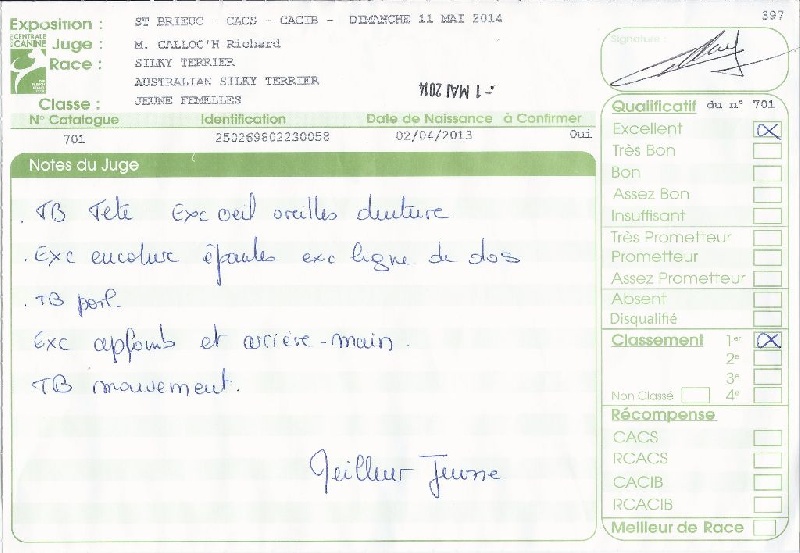 397
Exposition : ST BRIEUC - CACS - CACIB - DIMANCHE 11 MAI 2014
CENTRALE CANINE
Juge : M. CALLOC'H Richard
Race : SILKY TERRIER
AUSTRALIAN SILKY TERRIER
- 1 MAI 2014
Classe : JEUNE FEMELLES
N° Catalogue Identification Date de Naissance à Confirmer
701 250269802230058 02/04/2013 Oui
Notes du Juge
. TB Tête Exc oeil oreilles denture
. Exc encolure épaules exc ligne de dos
. TB poil.
Exc aplombs et arrière-main.
TB mouvement.
Meilleur Jeune
Signature :
Qualificatif du n° 701
Excellent X
Très Bon
Bon
Assez Bon
Insuffisant
Très Prometteur
Prometteur
Assez Prometteur
Absent
Disqualifié
Classement 1er X
2e
3e
Non Classé 4e
Récompense
CACS
RCACS
CACIB
RCACIB
Meilleur de Race